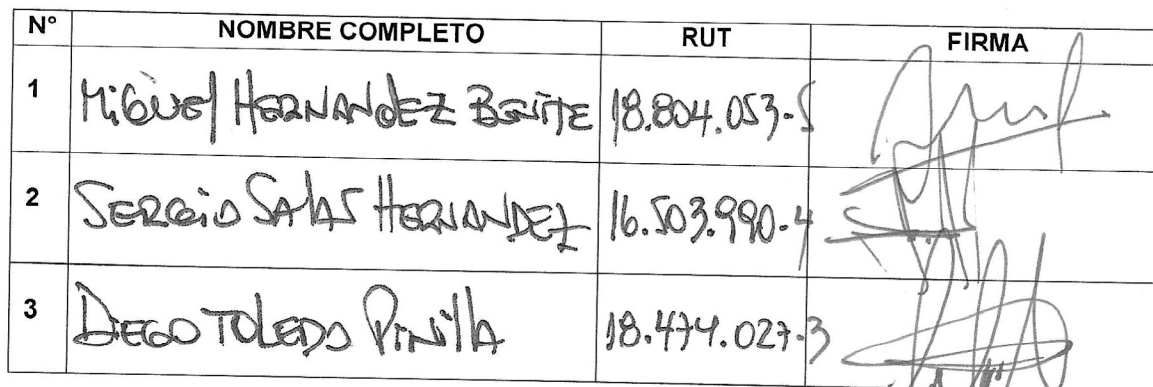 N° NOMBRE COMPLETO RUT FIRMA
1 MiGUEl HERNANdEZ BENiTE 18.804.053-5
2 SERGiO SAlAS HERNANDEZ 16.503.990-4
3 DiEGO TOLEDO PiNillA 18.474.027-3